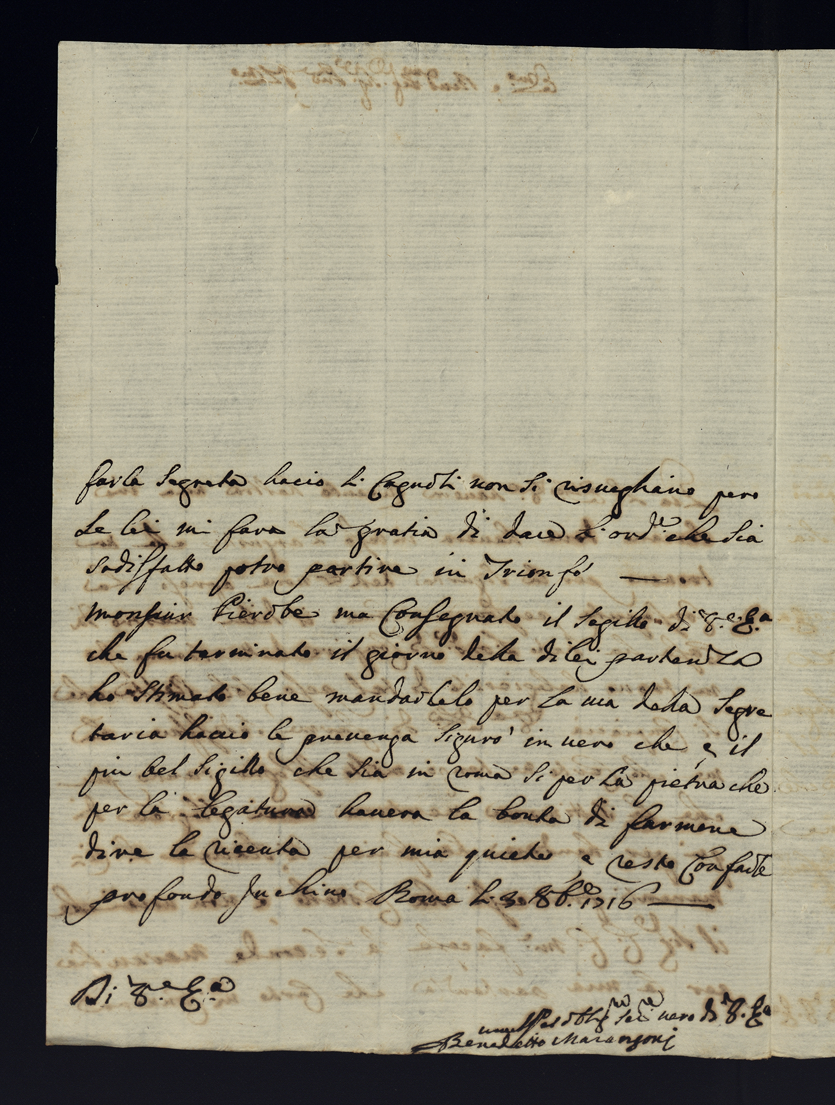 farla segreta hacio li Cagnoli non si risveghino pero
se lei mi fara la gratia di dare l'ord.e che sia
sodisfatto potro partire in Trionfo
Monsiur Pierobe ma Consegnato il sigillo di V.e E.a
che fu terminato il giorno della di lei partenza
ho stimato bene mandarlelo per la via della Segre
taria hacio le prevenga siguro in vero che e il
piu bel sigillo che sia in roma si per la pietra che
per la legatura havera la bonta di farmene
dire la riceuta per mia quiete e resto Con farle
profondo Inchino Roma li 3 8b.e 1716
Di V.e E.a
umiliss.o et obblig.mo ser.e vero di V. E.a
Benedetto Marangoni